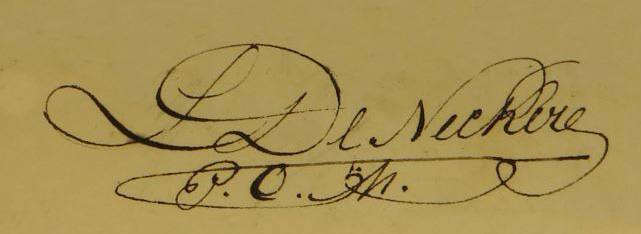 L De Neckere
P. C. M.